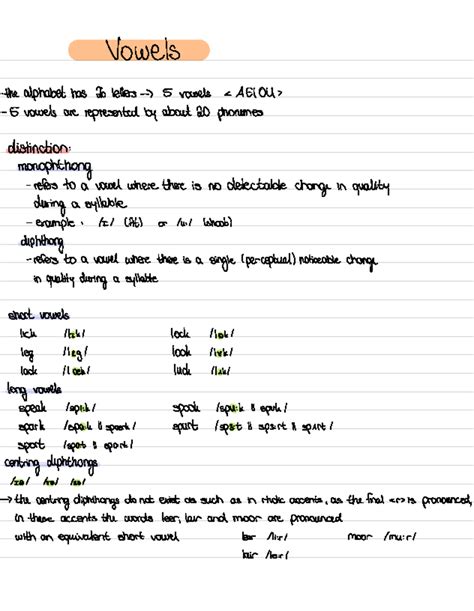 Vowels
-the alphabet has 26 letters --> 5 vowels <AEIOU>
- 5 vowels are represented by about 20 phonemes
distinction:
monophthong
- refers to a vowel where there is no detectable change in quality
during a syllable
- example: /ɪ/ (fit) or /u:/ (shoot)
diphthong
- refers to a vowel where there is a single (perceptual) noticeable change
in quality during a syllable
short vowels
lick /lɪk/ lock /lɒk/
leg /leg/ look /lʊk/
lack /læk/ luck /lʌk/
long vowels
speak spook
spark spurt
sport
centring diphthongs
→ the centring diphthongs do not exist as such as in rhotic accents, as the final <r> is pronounced,
in these accents the words leer, lair and moor are pronounced
with an equivalent short vowel leer /lɪr/ moor /mu:r/
lair /ler/